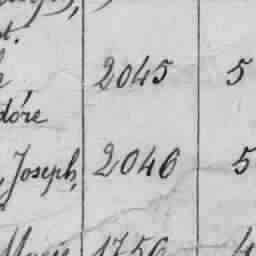 2045 5
dóre
Joseph, 2046 5
1756 4